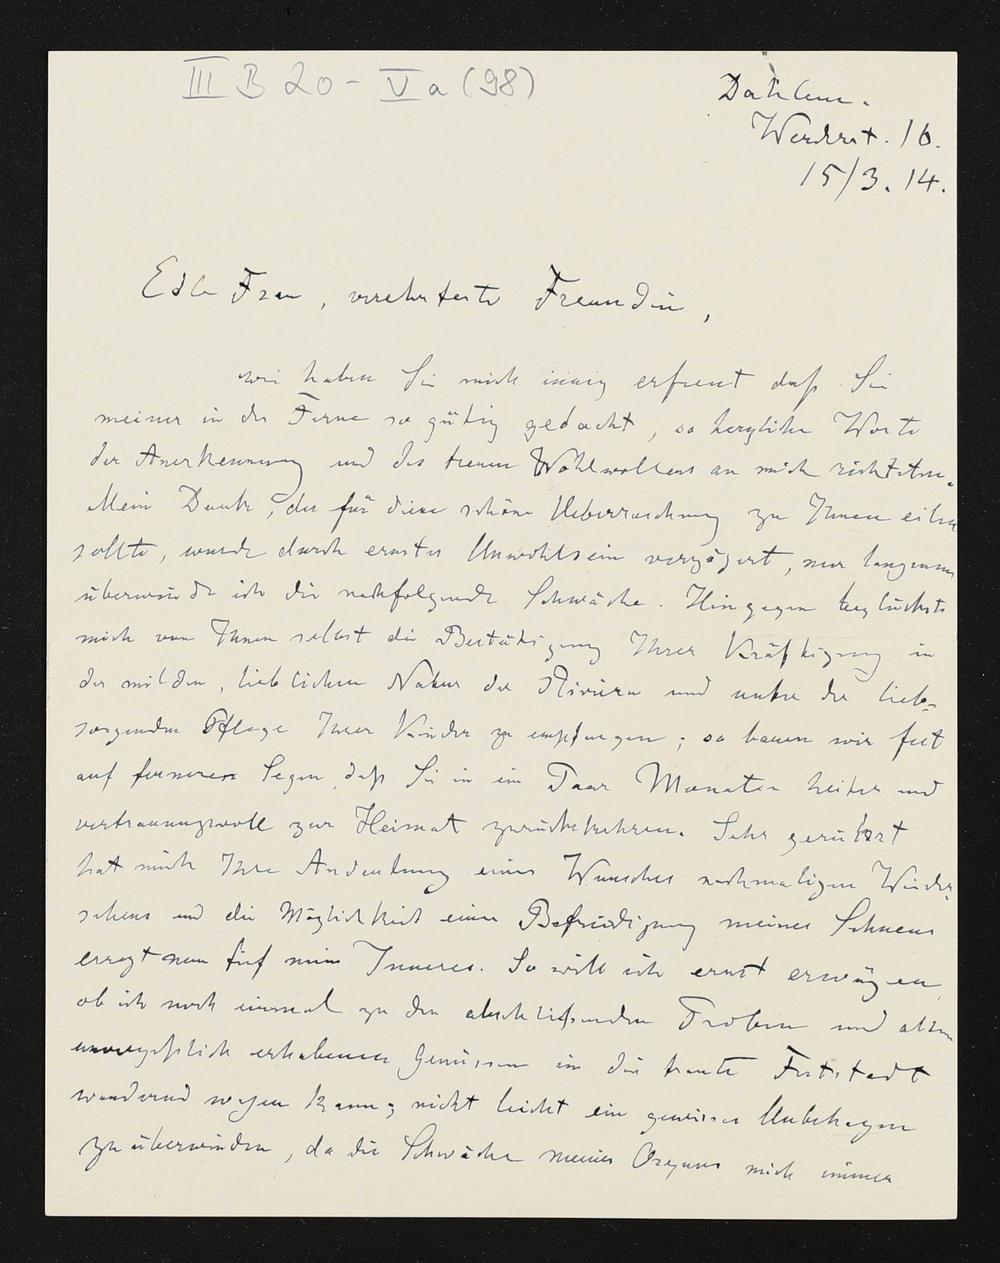 III B 20 - V a (98)
Dahlem.
Werderst. 16.
15/3. 14.
Edle Frau, verehrteste Freundin,
wie haben Sie mich innig erfreut daß Sie
meiner in der Ferne so gütig gedacht, so herzliche Worte
der Anerkennung und des treuen Wohlwollens an mich richteten.
Mein Dank, der für diese schöne Ueberraschung zu Ihnen eilen
sollte, wurde durch ernstes Unwohlsein verzögert, nur langsam
überwinde ich die nachfolgende Schwäche. Hingegen beglückte
mich von Ihnen selbst die Bestätigung Ihrer Kräftigung in
der milden, lieblichen Natur der Riviera und unter der lieb-
sorgenden Pflege Ihrer Kinder zu empfangen; so bauen wir fest
auf ferneren Segen, daß Sie in ein Paar Monaten heiter und
vertrauungsvoll zur Heimat zurückkehren. Sehr gerührt
hat mich Ihre Andeutung eines Wunsches nochmaligen Wieder-
sehens und die Möglichkeit einer Befriedigung meines Sehnens
erregt nun tief mein Inneres. So will ich ernst erwägen,
ob ich noch einmal zu den abschließenden Proben und allen
unvergeßlich erhabenen Genüssen in die traute Feststadt
wandernd wagen kann; nicht leicht ein gewisses Unbehagen
zu überwinden, da die Schwäche meines Organs mich immer